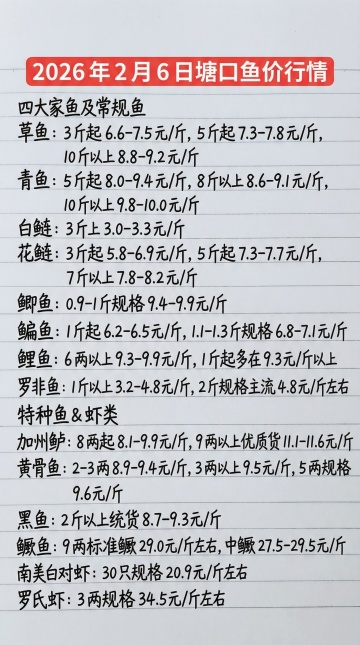 2026年2月6日塘口鱼价行情
四大家鱼及常规鱼
草鱼：3斤起6.6-7.5元/斤，5斤起7.3-7.8元/斤，
10斤以上8.8-9.2元/斤
青鱼：5斤起8.0-9.4元/斤，8斤以上8.6-9.1元/斤，
10斤以上9.8-10.0元/斤
白鲢：3斤上3.0-3.3元/斤
花鲢：3斤起5.8-6.9元/斤，5斤起7.3-7.7元/斤，
7斤以上7.8-8.2元/斤
鲫鱼：0.9-1斤规格9.4-9.9元/斤
鳊鱼：1斤起6.2-6.5元/斤，1.1-1.3斤规格6.8-7.1元/斤
鲤鱼：6两以上9.3-9.9元/斤，1斤起多在9.3元/斤以上
罗非鱼：1斤以上3.2-4.8元/斤，2斤规格主流4.8元/斤左右
特种鱼&虾类
加州鲈：8两起8.1-9.9元/斤，9两以上优质货11.1-11.6元/斤
黄骨鱼：2-3两8.9-9.4元/斤，3两以上9.5元/斤，5两规格
9.6元/斤
黑鱼：2斤以上统货8.7-9.3元/斤
鳜鱼：9两标准鳜29.0元/斤左右，中鳜27.5-29.5元/斤
南美白对虾：30只规格20.9元/斤左右
罗氏虾：3两规格34.5元/斤左右